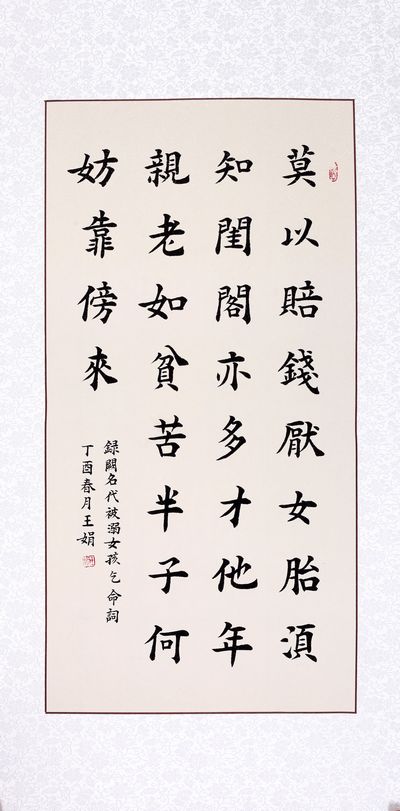 莫以賠錢厭女胎湏
知閨閣亦多才他年
親老如貧苦半子何
妨靠傍來
録闕名代被溺女孩乞命詞
丁酉春月王娟